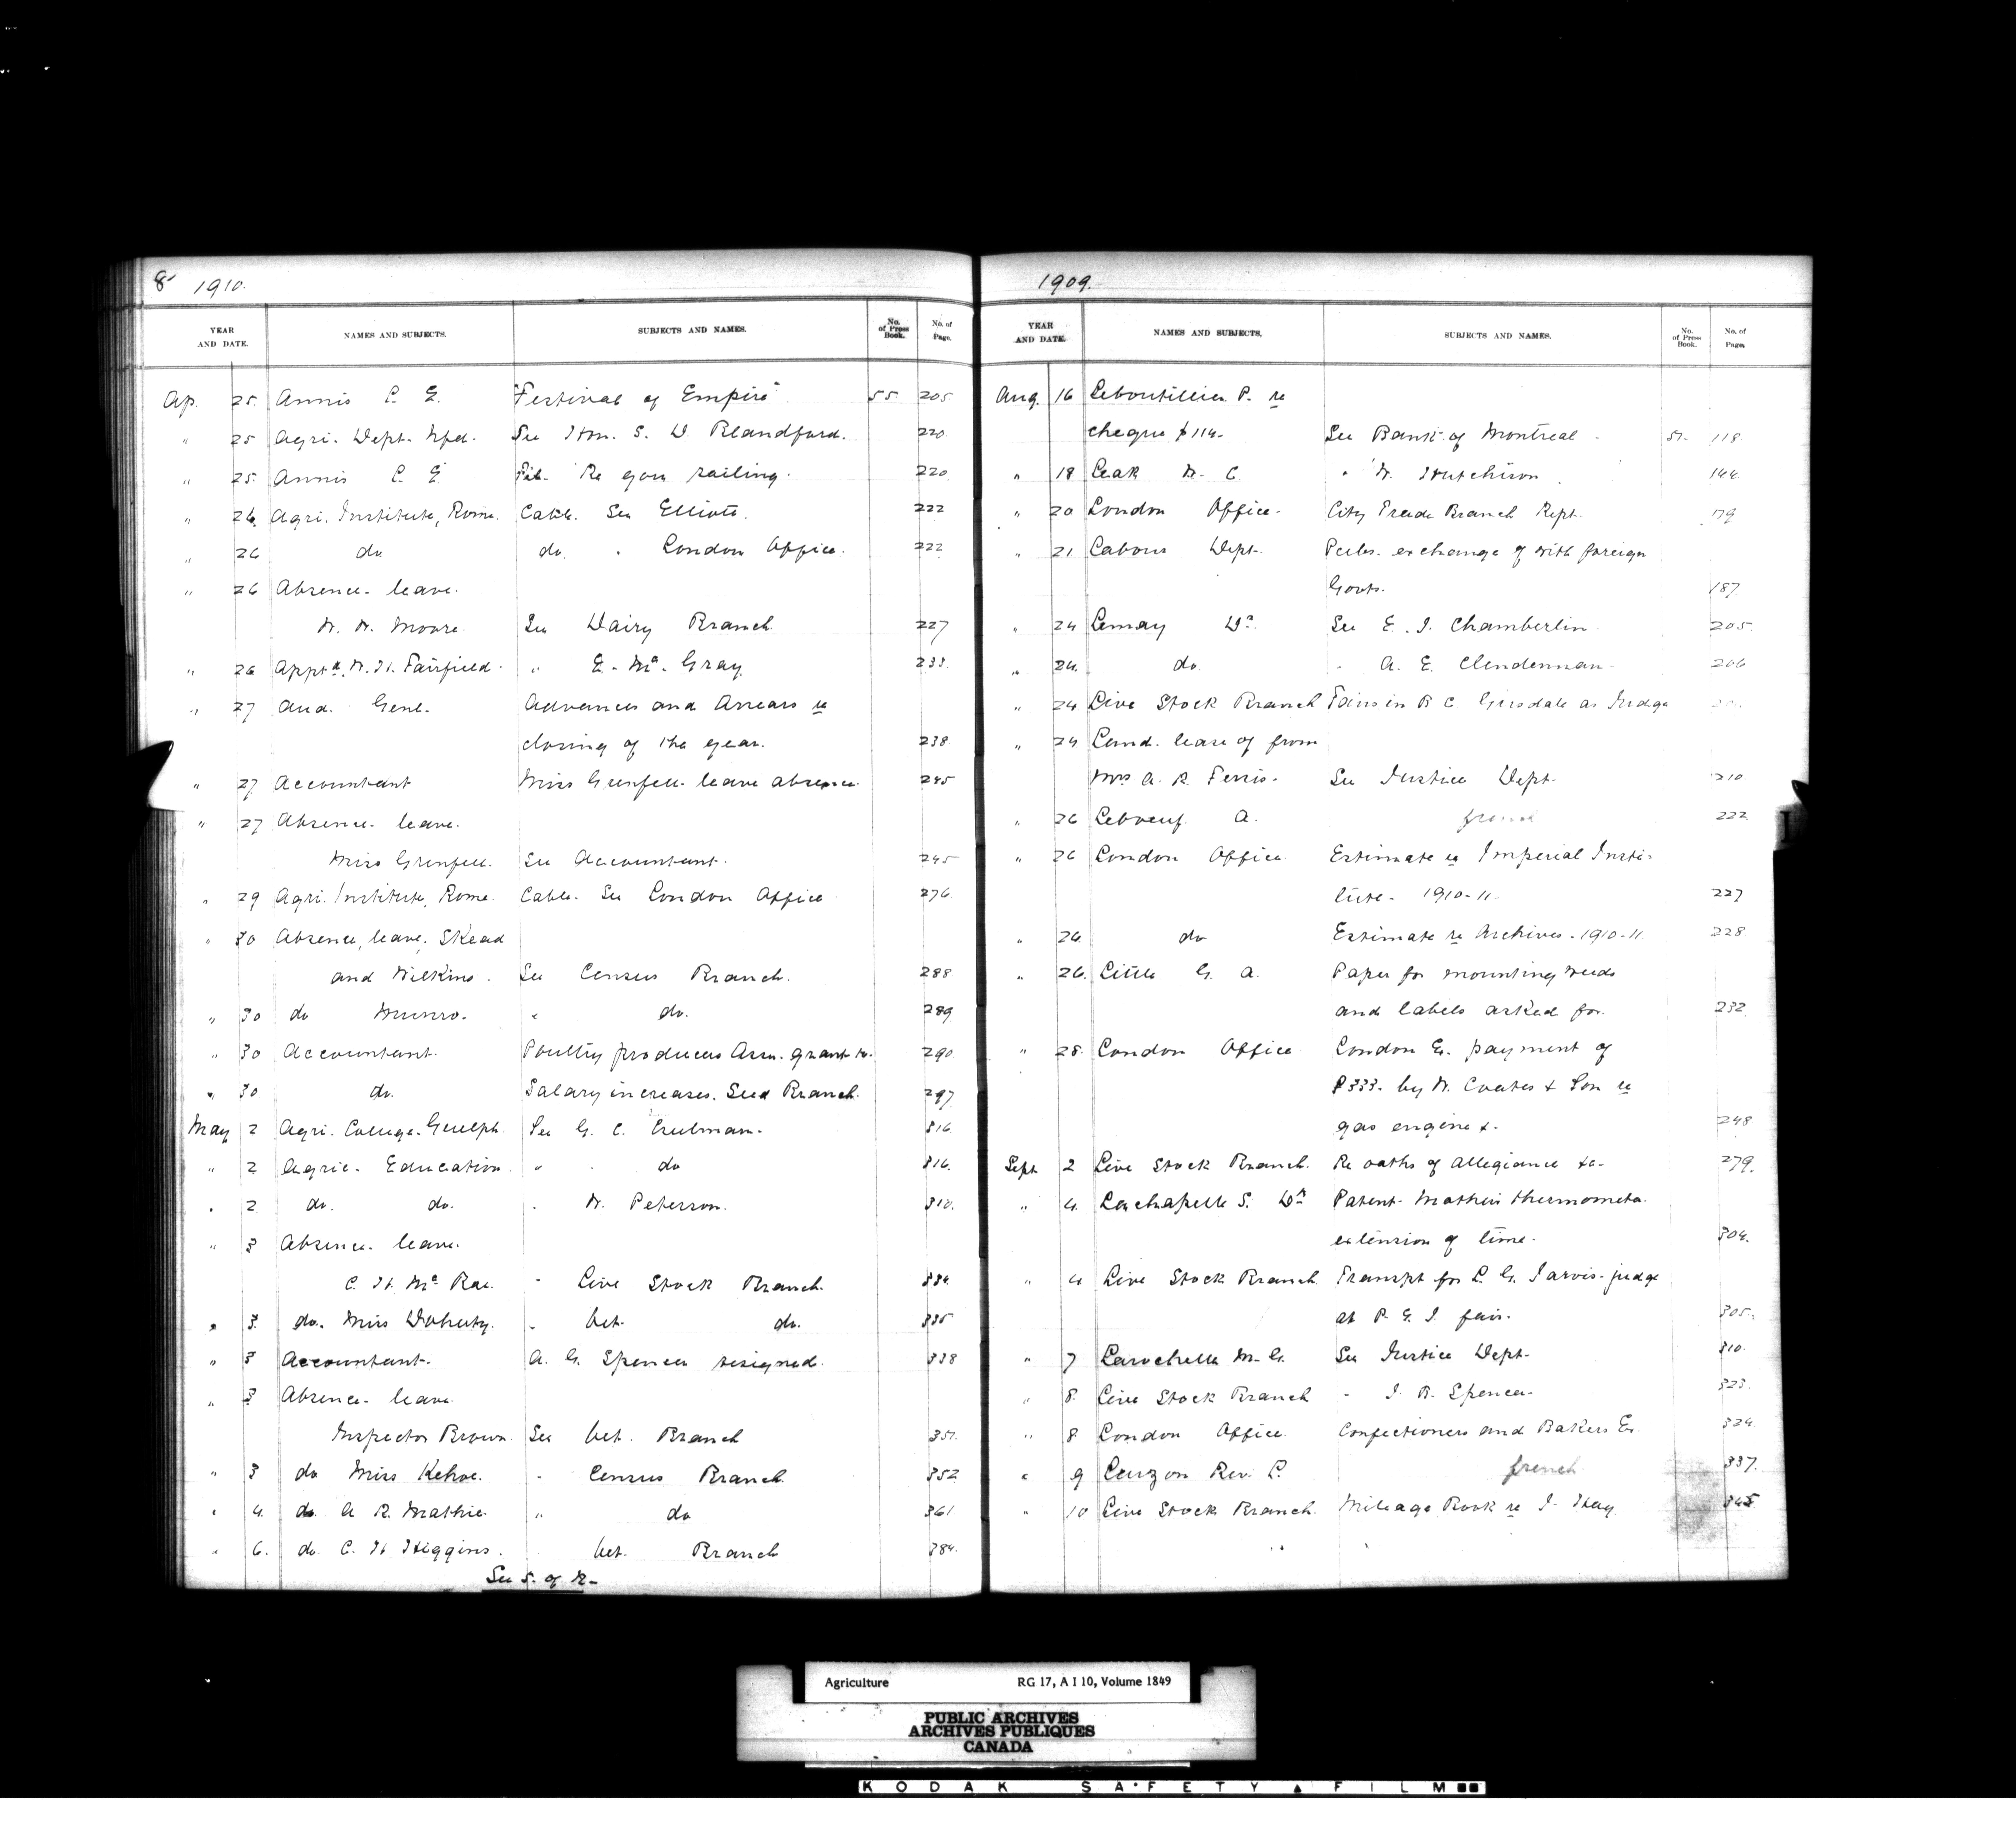 8 1910.
YEAR AND DATE. NAMES AND SUBJECTS. SUBJECTS AND NAMES. No. of Press Book. No. of Page.
Ap. 25. Annis P. E. "Festival of Empire" 55 205
" 25 Agri. Dept. Nfd. See Hon. S. D. Blandford. 220
" 25 Annis P. E. Re your sailing. 220
" 26. Agri. Institute, Rome. Cable. See Elliott. 222
" 26 do do. " London Office. 222
" 26 Absence. leave.
W. W. Moore. See Dairy Branch 227
" 26 Appt. W. H. Fairfield. " E. Mc. Gray 233.
" 27 Aud. Genl. Advances and Arrears re
closing of the year. 238
" 27 Accountant Miss Grenfell. leave absence. 245
" 27 Absence. leave.
Miss Grenfell. See Accountant. 245
" 29 Agri. Institute, Rome. Cable. See London Office 276
" 30 Absence, leave. Skead
and Wilkins. See Census Branch. 288
" 30 do Munro. " do. 289
" 30 Accountant. Poultry producers Assn. grant to. 290
" 30 do. Salary increases. Seed Branch. 297
May 2 Agri. College. Guelph. See G. C. Creelman. 316
" 2 Agric. Education. " do 316.
" 2 do. do. " W. Peterson. 318.
" 3 Absence. leave.
C. H. Mc Rae. " Live Stock Branch. 334.
" 3. do. Miss Doherty. " Vet. do. 335
" 3 Accountant. A. G. Spencer resigned. 338
" 3 Absence. leave.
Inspector Brown. See Vet. Branch 351.
" 3 do Miss Kehoe. " Census Branch 352
" 4. do. A R. Mathie " do 361
" 6. do. C. H Higgins. Vet. Branch 384.
See S. of R.
1909.
YEAR AND DATE. NAMES AND SUBJECTS. SUBJECTS AND NAMES. No. of Press Book. No. of Page.
Aug. 16 Leboutillier P. re
cheque $114. See Bank of Montreal 51. 118
" 18 Leak W. C. " W. Hutchison 144
" 20 London Office. City Trade Branch Rept. 179
" 21 Labour Dept. Pubs. exchange of with foreign
Govts. 187
" 24 Lemay Dr. See E. J. Chamberlin 205.
" 24. do. " A. E. Clendennan 206
" 24 Live Stock Branch Fairs in B C. Grisdale as Judge
" 24 Land. lease of from
Mrs A. R. Ferris. See Justice Dept. 210
" 26 Leboeuf A. french 222
" 26 London Office. Estimate re Imperial Insti-
tute. 1910-11. 227
" 26. do Estimate re Archives. 1910-11. 228
" 26. Little G. A. Paper for mounting weeds
and labels asked for. 232
" 28. London Office London Ex. payment of
$333. by W. Coates & Son re
gas engine &. 248
Sept 2 Live Stock Branch. Re oaths of Allegiance &c. 279.
" 4. Lachapelle S. Dr. Patent. Mathieu thermometer.
extension of time. 304.
" 4 Live Stock Branch. Transpt for L. G. Jarvis. judge
at P. E. I. fair. 305.
" 7 Larochelle M. G. See Justice Dept. 310.
" 8. Live Stock Branch " J. B. Spencer. 323.
" 8 London Office. Confectioners and Bakers Ex. 324.
" 9 Cauzon Rev. P. french 337.
" 10 Live Stock Branch. Mileage Book re J. Hay. 345
Agriculture RG 17, A I 10, Volume 1849
PUBLIC ARCHIVES
ARCHIVES PUBLIQUES
CANADA
KODAK SAFETY FILM